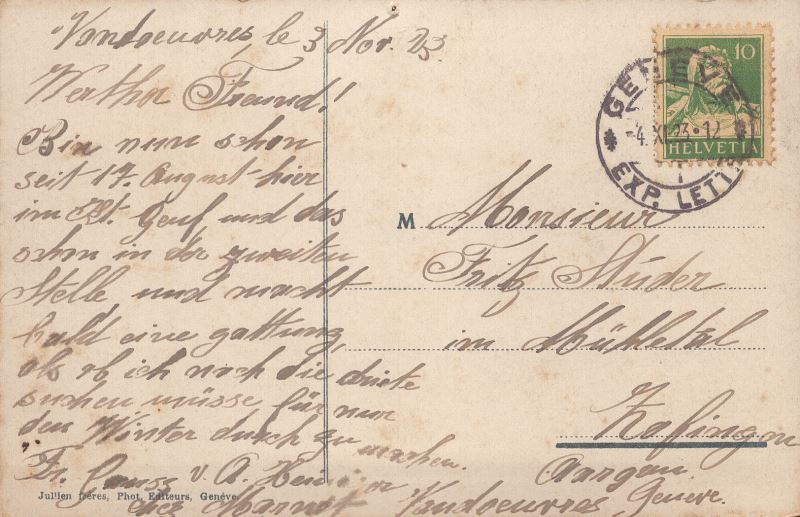 Vandoeuvres, le 3 Nov. 23
Werther Freund!
Bin nun schon
seit 17. August hier
im Kt. Genf und das
schon in der zweiten
Stelle und macht
bald eine gattung,
als ob ich noch die driete
suchen müsse für nur
den Winter durch zu
machen.
Fr. v. A.
chez Vandoeuvres Genève.
10
HELVETIA
GENEVE
EXP. LETTR
M Monsieur
Fritz Studer
im Mühletal
Zofingen
Aargau
Jullien frères, Phot. Editeurs, Genève